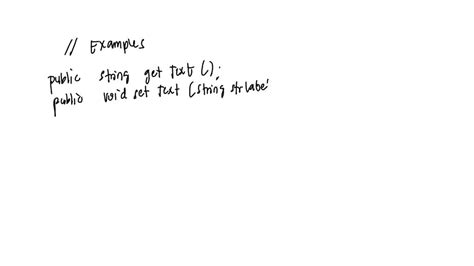 // Examples
public string get text ();
public void set text (string strlabe'